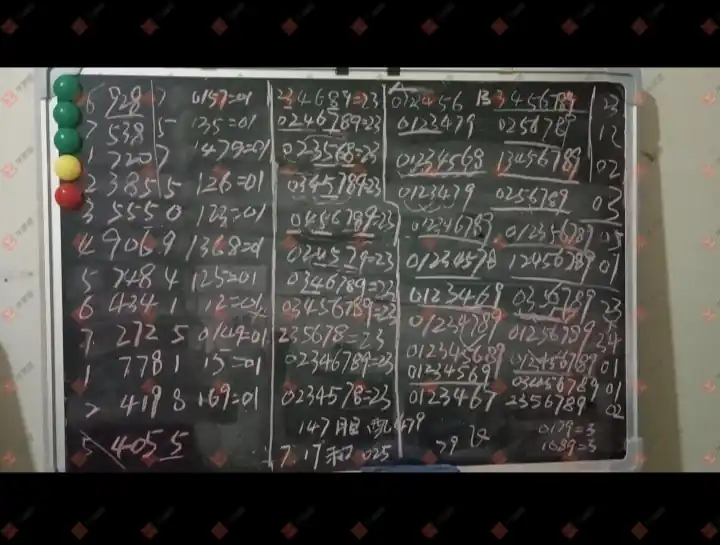 6 928 7 0157=01 234689=23 012456 B 3456789 23
7 538 5 135=01 0246789=23 0123479 025678 12
1 720 7 1479=01 023568=23 01234568 13456789 02
2 385 5 126=01 0345789=23 0123479 0256789 03
3 555 0 123=01 0456789=23 012346789 012356789 05
4 906 9 1368=01 024579=23 01234578 12456789 01
5 748 4 125=01 0346789=23 0123469 0356789 23
6 434 1 12=01 03456789=23 01234789 01256789 24
7 272 5 0149=01 235678=23 012345689 012456789 01
1 778 1 15=01 02346789=23 01234569 03456789 01
2 419 8 169=01 0234578=23 0123467 2356789 02
5 405 5 147胆 479 0179=3
7.17和025 79 1089=3